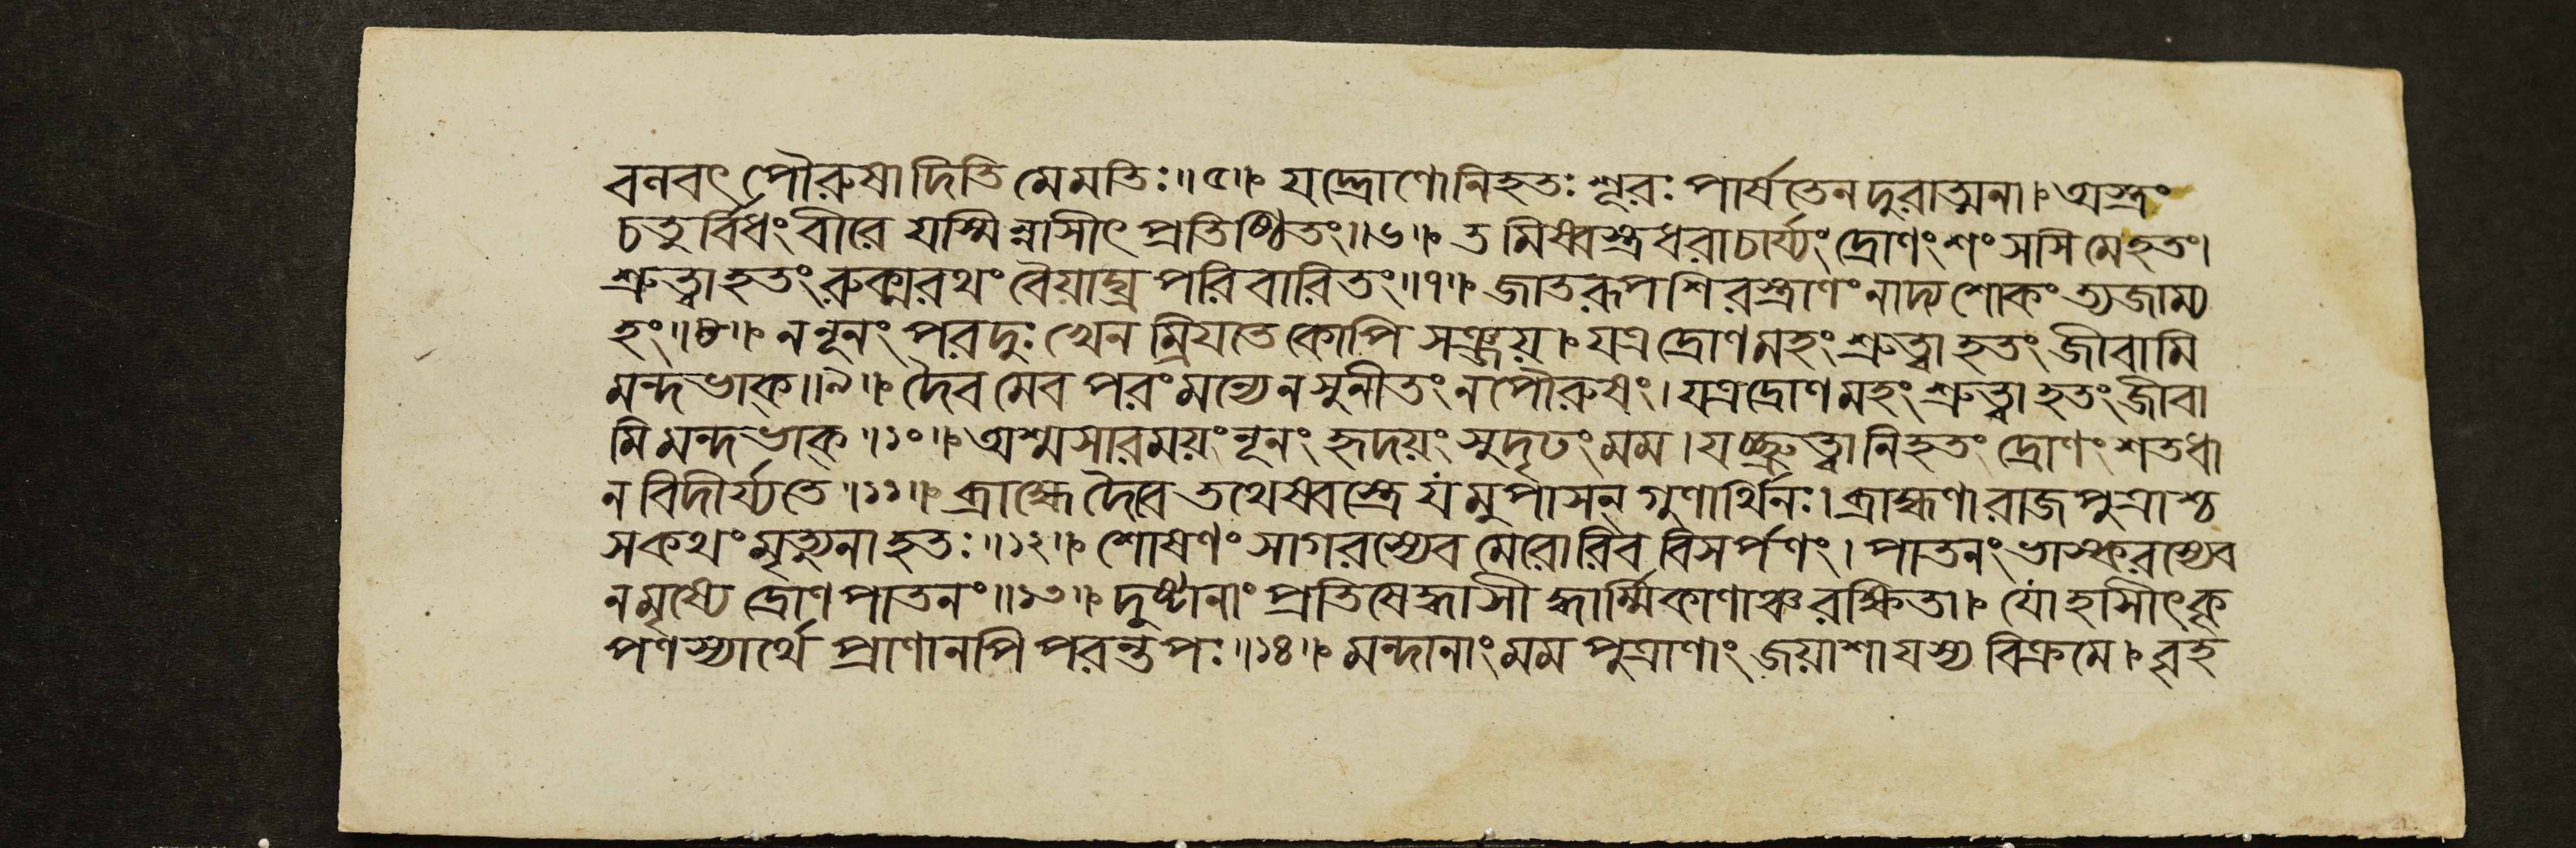 বনবৎ পৌরুষাদিতি মে মতিঃ॥৫॥ যদ্দ্রোণোনিহতঃ শূরঃ পার্ষতেন দুরাত্মনা। অস্ত্রং
চতুর্বিধং বীরে যস্মিন্নাসীৎ প্রতিষ্ঠিতং॥৬॥ তমিষ্বস্ত্রধরাচার্য্যং দ্রোণং শংসসি মে হতং।
শ্রুত্বা হতং রুক্মরথং বৈয়াঘ্র পরিবারিতং॥৭॥ জাতরূপশিরস্ত্রাণং নাদ্য শোকং ত্যজাম্য
হং॥৮॥ ন নূনং পরদুঃখেন ম্রিয়তে কোপি সঞ্জয়। যত্র দ্রোণমহং শ্রুত্বা হতং জীবামি
মন্দভাক্॥৯॥ দৈবমেব পরং মন্যে ন সুনীতং ন পৌরুষং। যত্র দ্রোণমহং শ্রুত্বা হতং জীবা
মি মন্দভাক্॥১০॥ অশ্মসারময়ং নূনং হৃদয়ং সুদৃঢং মম। যচ্ছ্রুত্বা নিহতং দ্রোণং শতধা
ন বিদীর্য্যতে॥১১॥ ব্রাহ্মে দৈবে তথেষ্বস্ত্রে যমুপাসন্ গুণার্থিনঃ। ব্রাহ্মণা রাজপুত্রাশ্চ
স কথং মৃত্যুনা হৃতঃ॥১২॥ শোষণং সাগরস্যেব মেরোরিব বিসর্পণং। পাতনং ভাস্করস্যেব
ন মৃষ্যে দ্রোণপাতনং॥১৩॥ দুষ্টানাং প্রতিষেদ্ধাসীদ্ধার্ম্মিকাণাঞ্চ রক্ষিতা। যোঽহাসীৎ কৃ
পণস্যার্থে প্রাণানপি পরন্তপঃ॥১৪॥ মন্দানাং মম পুত্রাণাং জয়াশা যস্য বিক্রমে। বৃহ